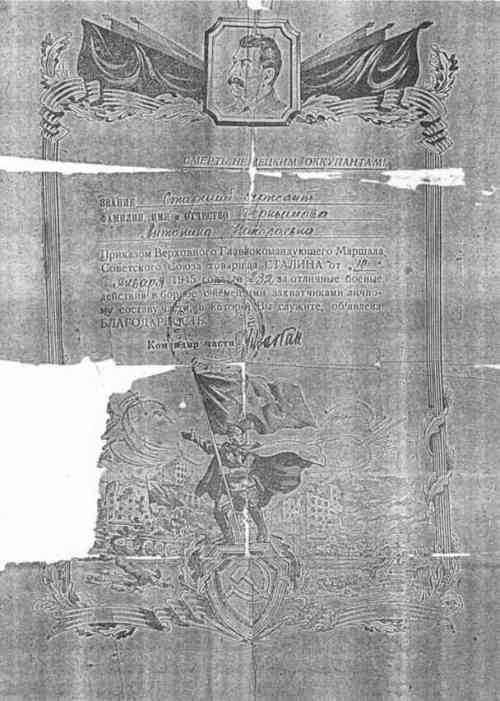 СМЕРТЬ НЕМЕЦКИМ ОККУПАНТАМ!
ЗВАНИЕ Старший сержант
ФАМИЛИЯ, ИМЯ и ОТЧЕСТВО
Антонина
Приказом Верховного Главнокомандующего Маршала
Советского Союза товарища СТАЛИНА от
января 1945 года № 232 за отличные боевые
действия в борьбе с немецкими захватчиками лично-
му составу части, в которой Вы служите, объявлена
БЛАГОДАРНОСТЬ.
Командир части